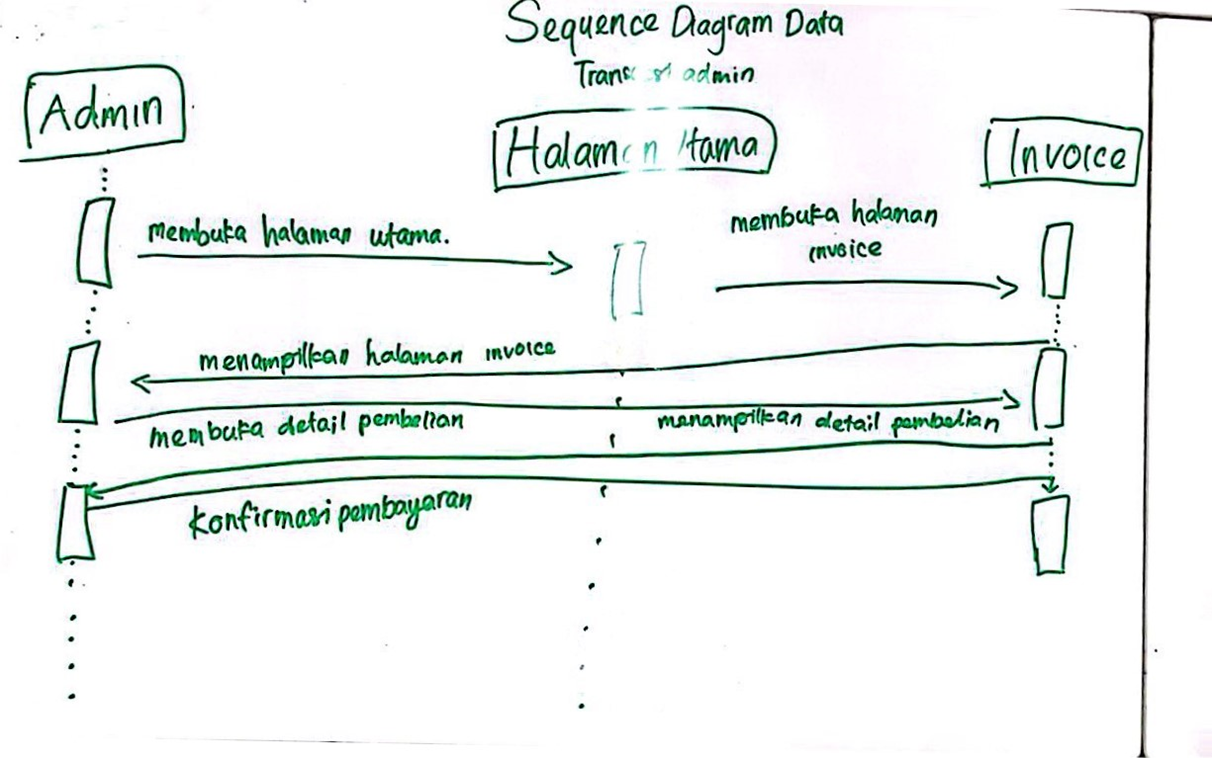 Sequence Diagram Data
admin
Admin
Invoice
membuka halaman utama.
membuka halaman
invoice
menampilkan halaman invoice
membuka detail pembelian
menampilkan detail pembelian
konfirmasi pembayaran